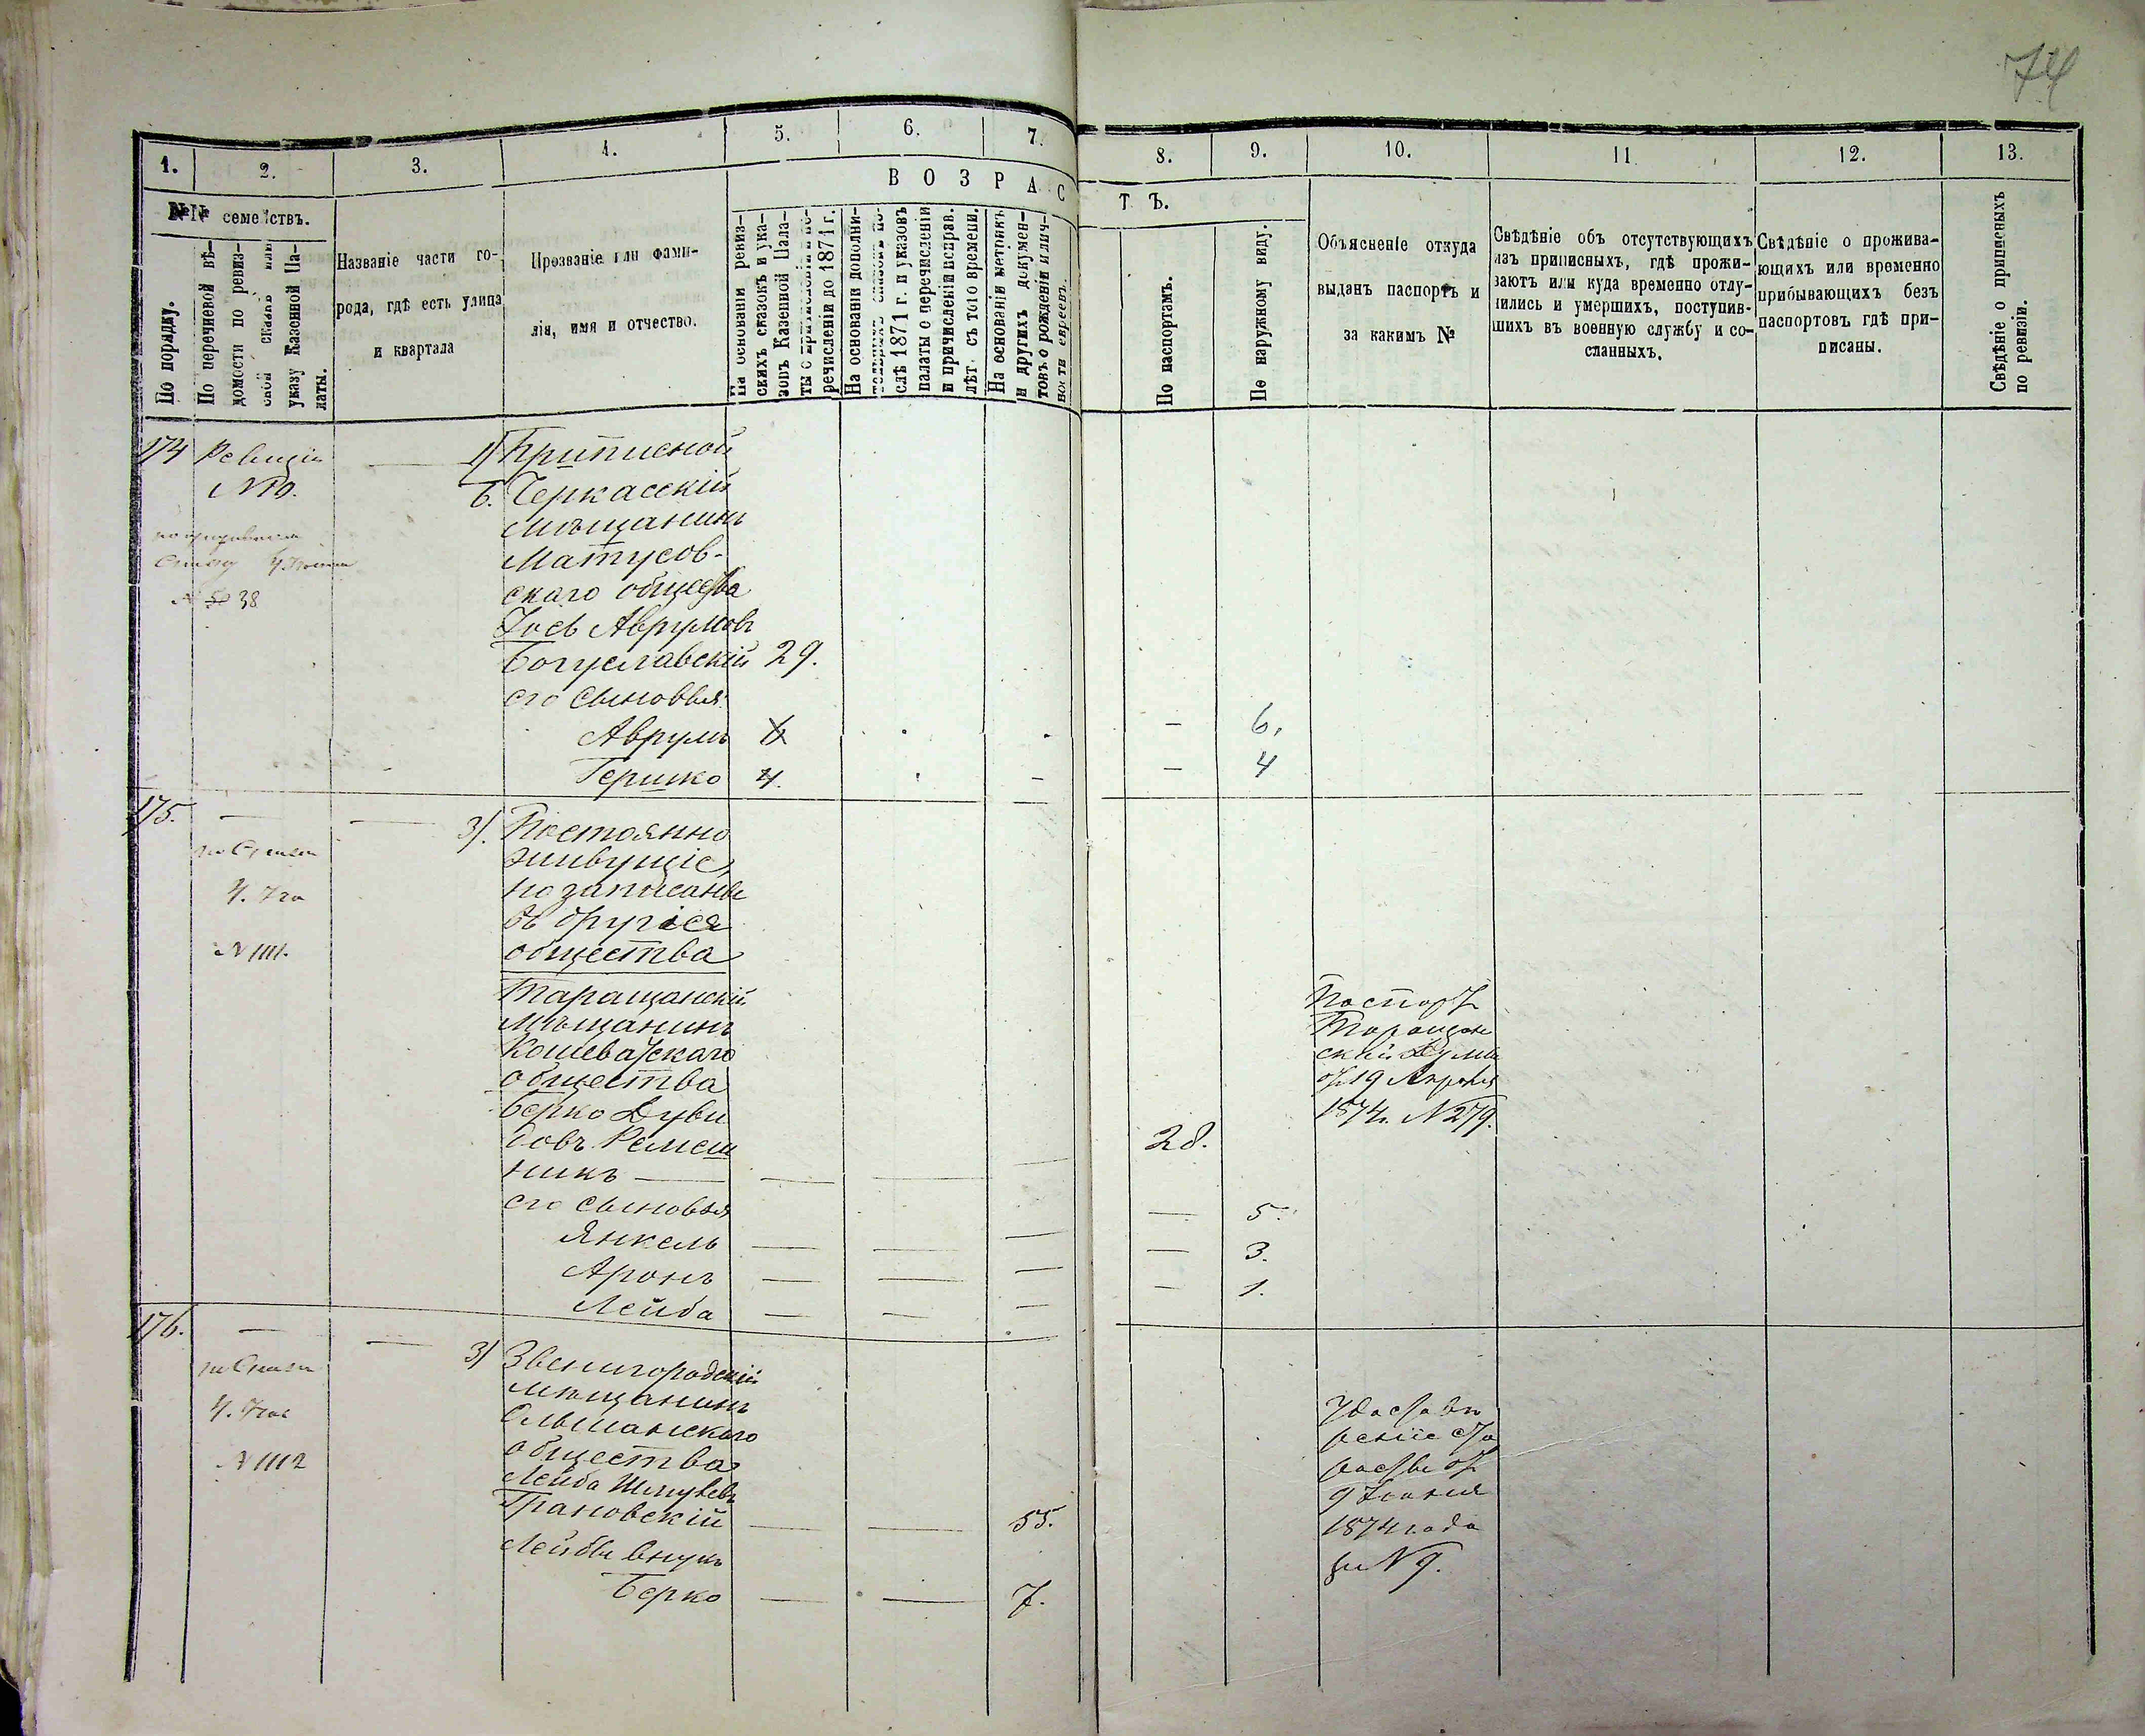 74
1.
2.
3.
4.
5.
6.
7.
8.
9.
10.
11.
12.
13.
№№ семействъ.
По порядку.
По перечневой вѣ-
домости по ревиз-
ской сказкѣ или
указу Казенной Па-
латы.
Названіе части го-
рода, гдѣ есть улица
и квартала
Прозваніе или фами-
лія, имя и отчество.
ВОЗРАС
ТЪ.
На основаніи ревиз-
скихъ сказокъ и ука-
зовъ Казенной Пала-
ты о
речисленіи до 1871 г.
На основаніи дополни-
слѣ 1871 г. и указовъ
палаты о перечисленіи
и причисленіи исправ.
лѣт. съ того времени.
На основаніи метрикъ
и другихъ докумен-
товъ о рожденіи и лич-
ности евреевъ.
По паспортамъ.
По наружному виду.
Объясненіе откуда
выданъ паспортъ и
за какимъ №
Свѣдѣніе объ отсутствующихъ
изъ приписныхъ, гдѣ прожи-
ваютъ или куда временно отлу-
чились и умершихъ, поступив-
шихъ въ военную службу и со-
сланныхъ.
Свѣдѣніе о прожива-
ющихъ или временно
прибывающихъ безъ
паспортовъ гдѣ при-
писаны.
Свѣдѣніе о приписныхъ
по ревизіи.
174 Ревизіи 1) Приписной
№ 10. б. Черкасскій
мѣщанинъ
Матусов-
№ 38 скаго общества
Іось Аврумовъ
Богуславскій 29.
его сыновья
Аврумъ 6 — 6.
Гершко 4. — — 4
175. — — 3). Постоянно
живущіе,
но записаны
въ другія
№ 1111. общества
Таращанскій
мѣщанинъ
Кошеватскаго
общества
Берко Дуви
довъ Ремеш
никъ — — — — 28.
Паспортъ
Таращан
ской Думы
отъ 19 Апрѣля
1874 г. № 279.
его сыновья
Янкель — — — — 5.
Аронъ — — — — 3.
Лейба — — — — 1.
176. — — 3) Звенигородскій
мѣщанинъ
Ольшанскаго
№ 1112 общества
Лейба Шмулевъ
Грановскій — — 55.
Лейбы внукъ
Берко — — 7.
Удостовѣ
реніе Ста
росты отъ
9 Іюня
1874 года
за № 9.